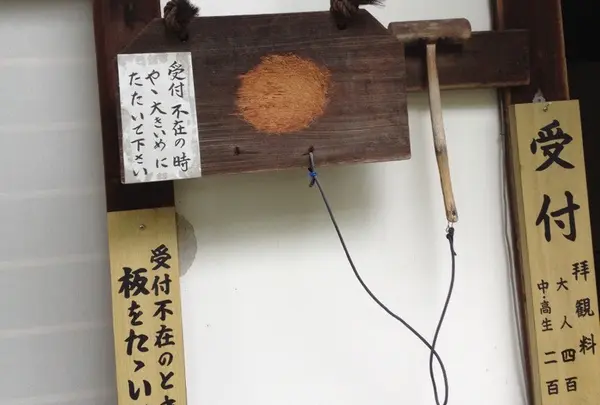 受付不在の時
やゝ大きいめに
たたいて下さい
受付不在のとき
板をたゝい
受付
拝観料
大人四百
中・高生二百